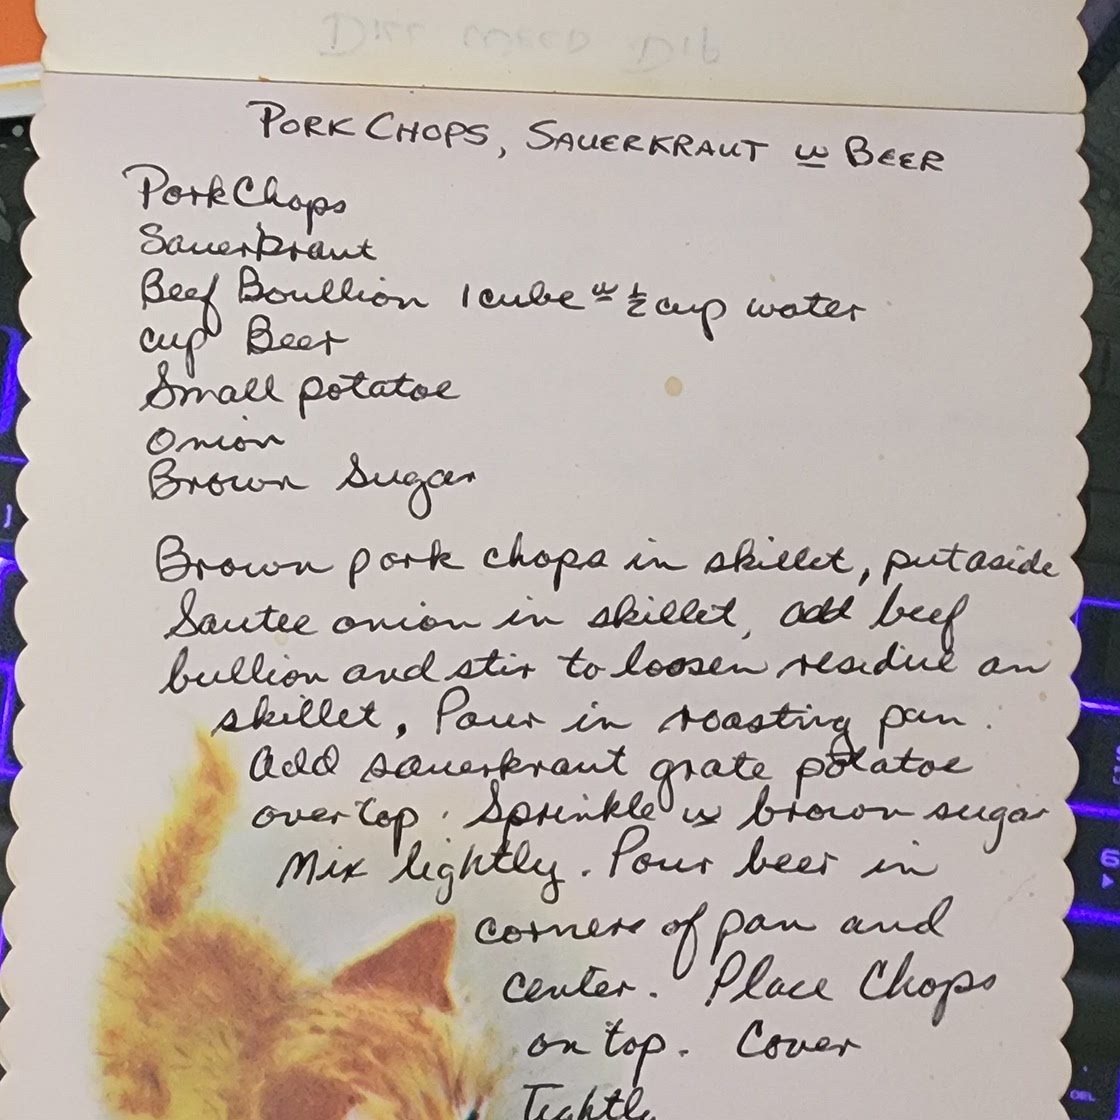 PORK CHOPS, SAUERKRAUT w BEER
Pork Chops
Sauerkraut
Beef Boullion 1 cube w ½ cup water
cup Beer
Small potatoe
Onion
Brown Sugar
Brown pork chops in skillet, put aside
Sautee onion in skillet, add beef
bullion and stir to loosen residue on
skillet, Pour in roasting pan.
Add sauerkraut grate potatoe
over top. Sprinkle w brown sugar
Mix lightly. Pour beer in
corners of pan and
center. Place Chops
on top. Cover
Tightly